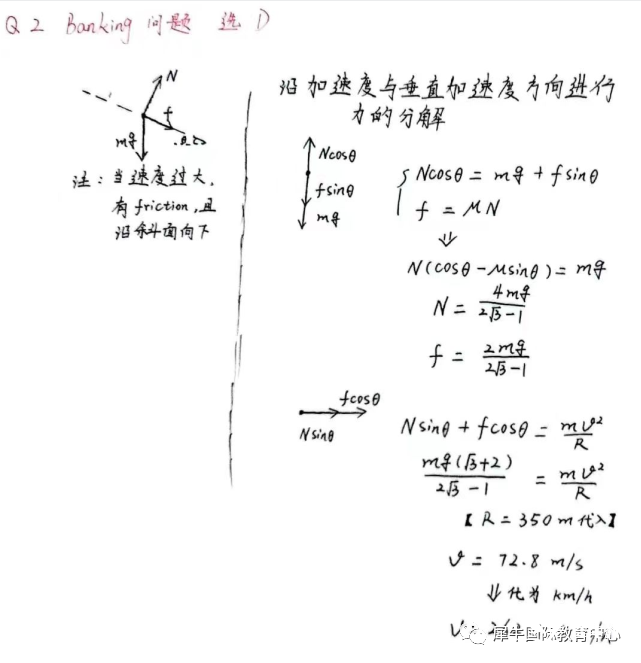 Q2 Banking 问题 选 D
N
f
mg
注：当速度过大，
有 friction，且
沿斜面向下
沿加速度与垂直加速度方向进行
力的分解
Ncosθ
fsinθ
mg
Ncosθ = mg + fsinθ
f = μN
⇓
N(cosθ - μsinθ) = mg
N = 4mg / (2√3 - 1)
f = 2mg / (2√3 - 1)
fcosθ
Nsinθ
Nsinθ + fcosθ = mv² / R
mg(√3+2) / (2√3 - 1) = mv² / R
【R = 350m 代入】
v = 72.8 m/s
⇓ 代为 km/h
犀牛国际教育